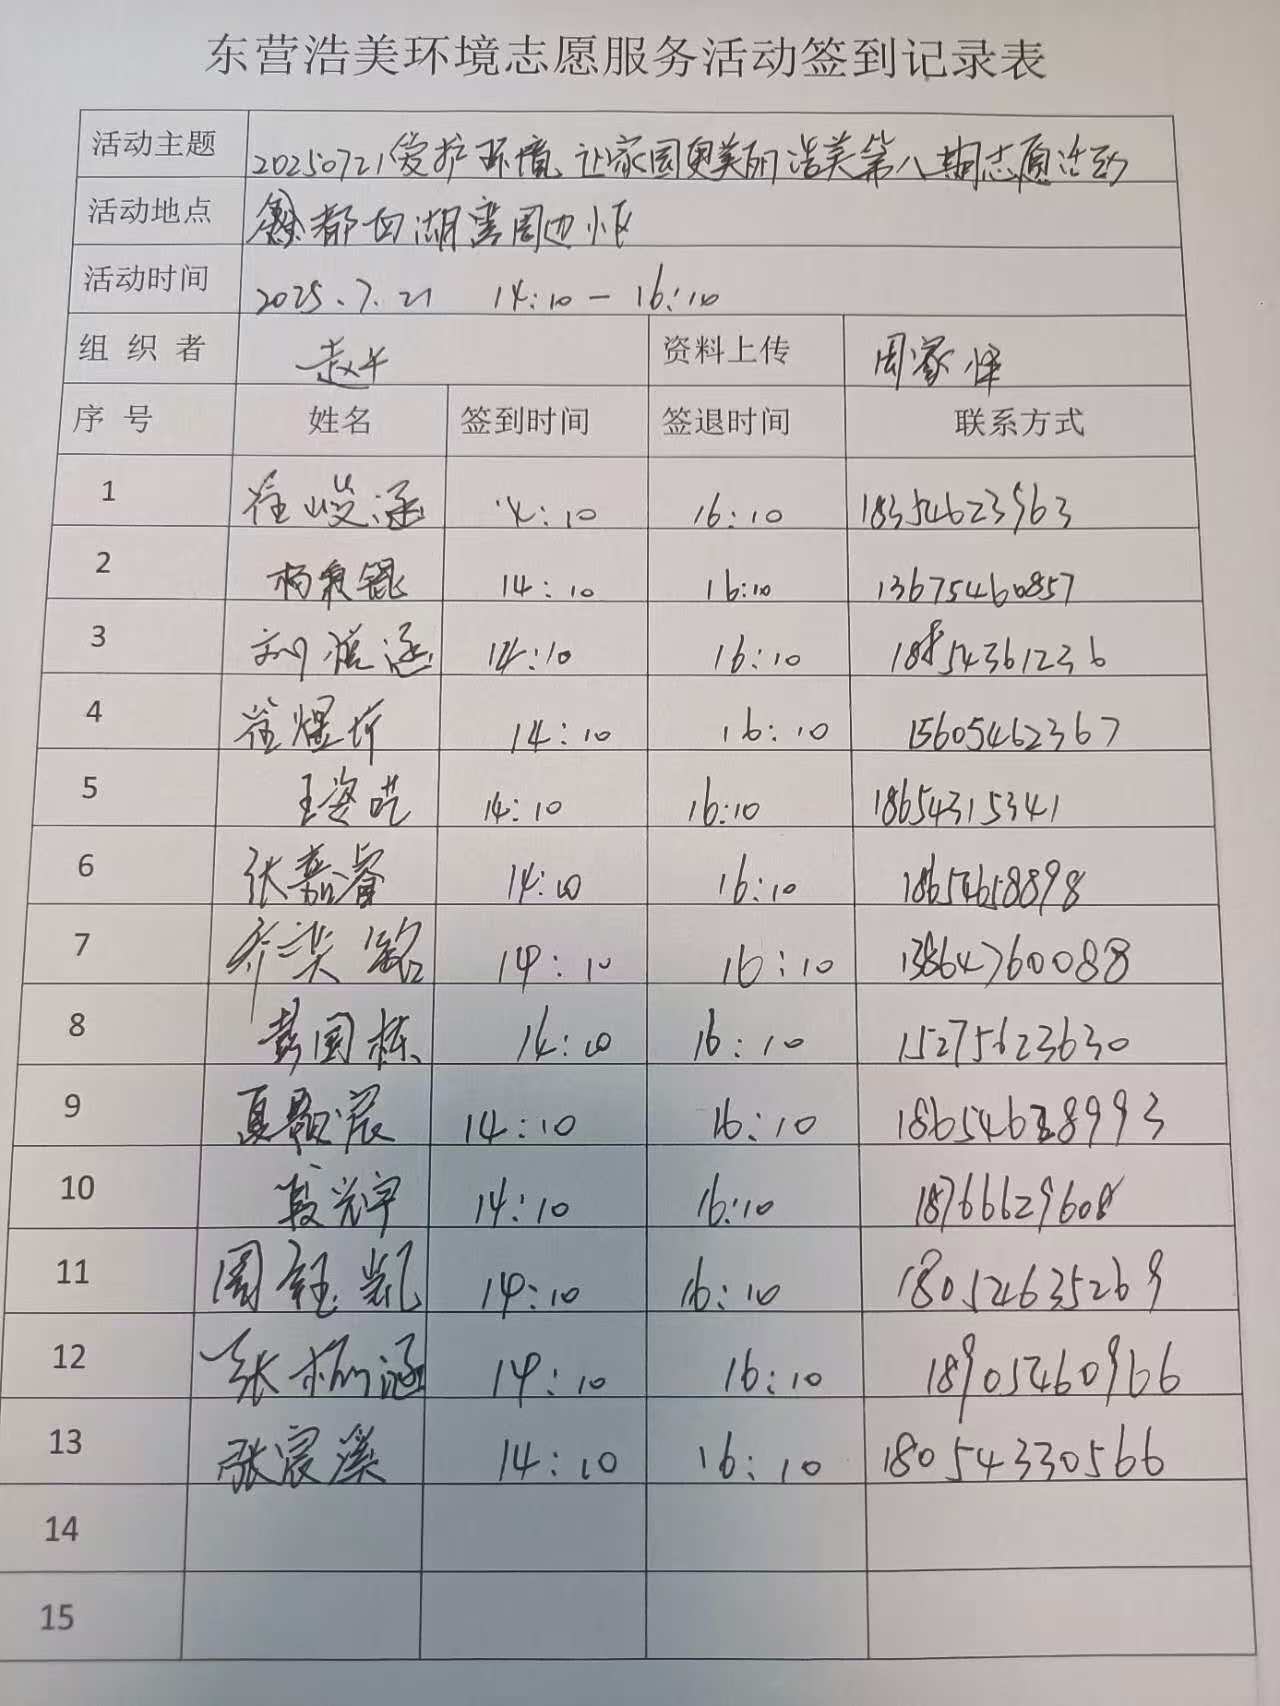 东营浩美环境志愿服务活动签到记录表
活动主题 20250721爱护环境,让家园更美丽浩美第八期志愿活动
活动地点 都 湖 周边
活动时间 2025.7.21 14:10-16:10
组织者 赵 资料上传 周家
序号 姓名 签到时间 签退时间 联系方式
1 崔 涵 14:10 16:10 18354623563
2 杨 锟 14:10 16:10 13675460857
3 刘 涵 14:10 16:10 18854361236
4 崔煜 14:10 16:10 15605462367
5 王姿 14:10 16:10 18654315341
6 张嘉睿 14:10 16:10 18654658898
7 乔 铭 14:10 16:10 13864760088
8 彭国栋 14:10 16:10 15275623630
9 夏 宸 14:10 16:10 1865468993
10 段光宇 14:10 16:10 18766629608
11 周钰凯 14:10 16:10 18052635269
12 张 涵 14:10 16:10 18905460966
13 张宸溪 14:10 16:10 18054330566
14
15